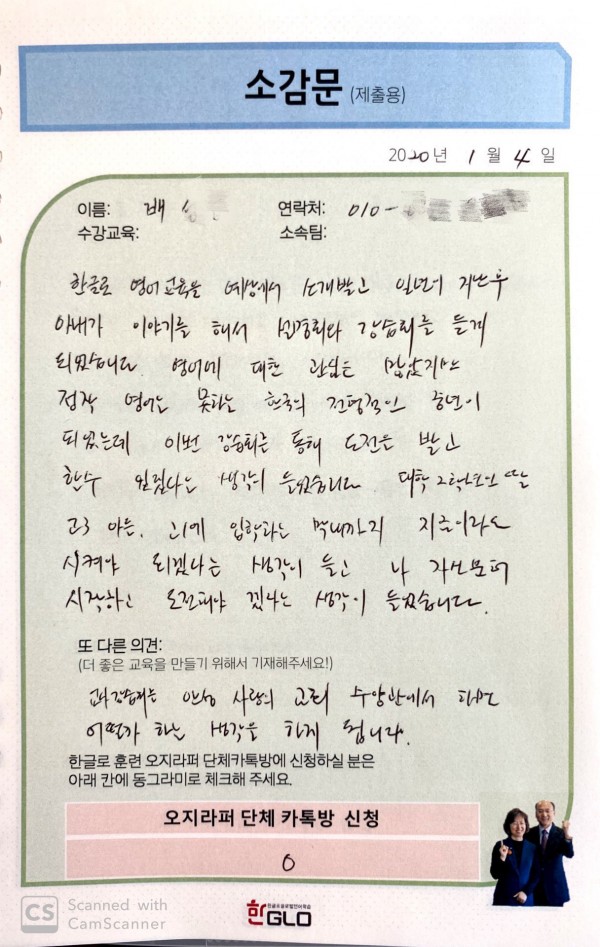 소감문 (제출용)
2020년 1월 4일
이름: 배 연락처: 010-
수강교육: 소속팀:
한글로 영어교육을 예상에서 소개받고 일년이 지난후
아내가 이야기를 해서 설명회와 강습회를 듣게
되었습니다. 영어에 대한 관심은 많았지만
정작 영어는 못하는 한국의 전형적인 중년이
되었는데 이번 강습회를 통해 도전을 받고
할수 있겠다는 생각이 들었습니다. 대학 2학년인 딸
고3 아들, 고1에 입학하는 막내까지 지금이라도
시켜야 되겠다는 생각이 들고 나 자신부터
시작하고 도전해야 겠다는 생각이 들었습니다.
또 다른 의견:
(더 좋은 교육을 만들기 위해서 기재해주세요!)
안성 사랑의 교회 수양관에서 하면
어떨까 하는 생각을 하게 됩니다.
한글로 훈련 오지라퍼 단체카톡방에 신청하실 분은
아래 칸에 동그라미로 체크해 주세요.
오지라퍼 단체 카톡방 신청
O
CS Scanned with
CamScanner
한글로글로벌언어학습
한GLO